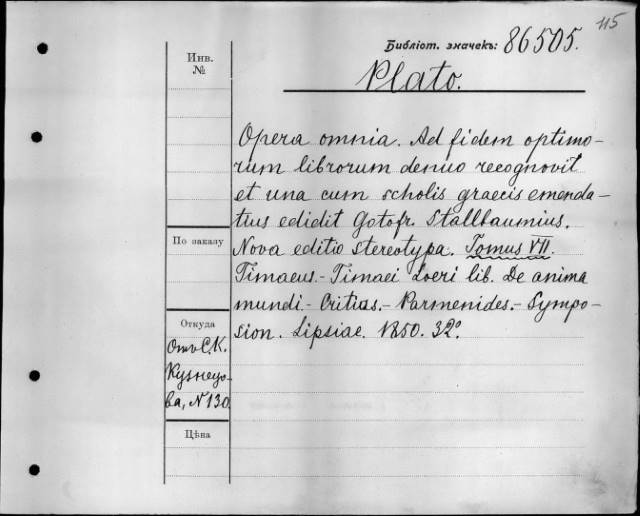 115
Библіот. значекъ: 86505.
Plato.
Инв.
№
Opera omnia. Ad fidem optimo-
rum librorum denuo recognovit
et una cum scholis graecis emenda-
tius edidit Gotofr. Stallbaumius.
Nova editio stereotypa. Tomus VII.
Timaeus.- Timaei Locri lib. De anima
mundi.- Critias.- Parmenides.- Sympo-
sion. Lipsiae. 1850. 32°.
По заказу
Откуда
Отъ С. К.
Кузнецо-
ва, № 130.
Цѣна